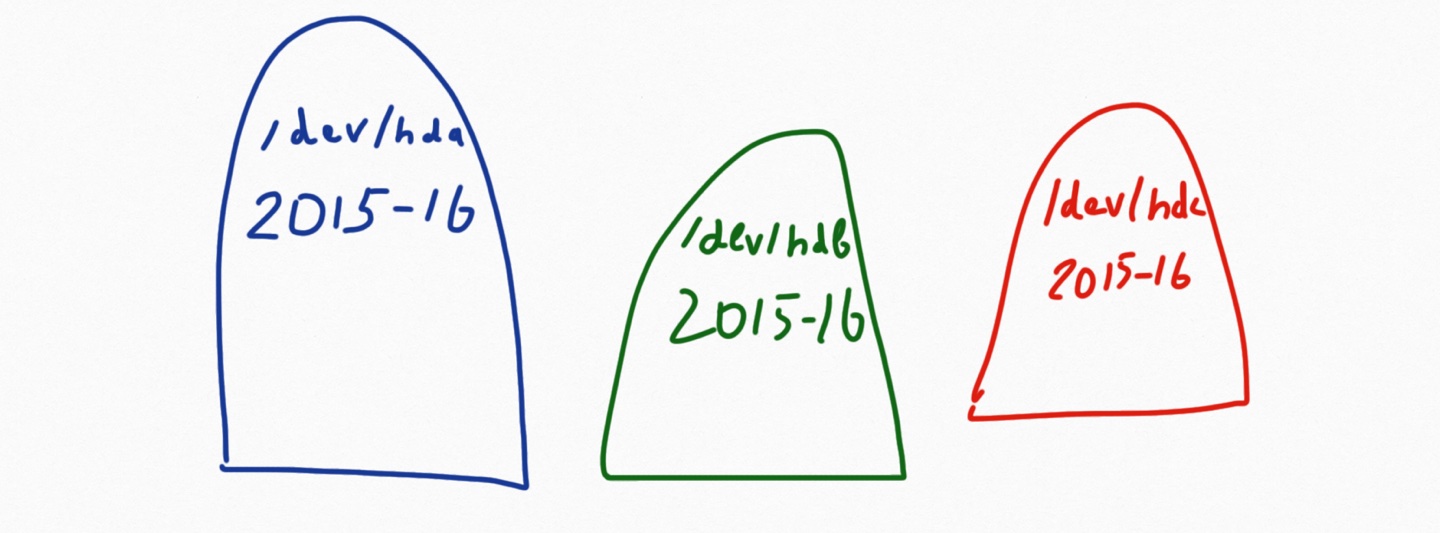 /dev/hda
2015-16
/dev/hdb
2015-16
/dev/hdc
2015-16